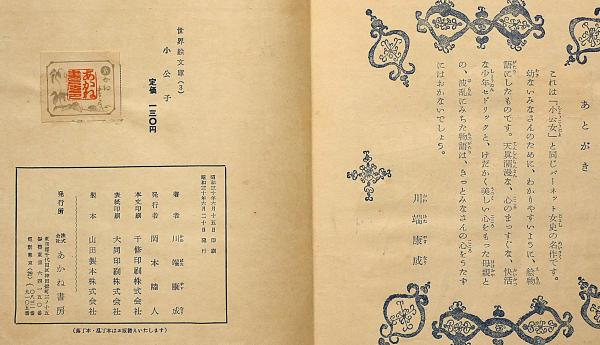 あとがき
これは『小公女』と同じバーネット女史の名作です。
幼ないみなさんのために、わかりやすいように、絵物
語にしたものです。天真爛漫な、心のまっすぐな、快活
な少年セドリックと、けだかく美しい心をもった母親と
の、波乱にみちた物語は、きっとみなさんの心をうたず
にはおかないでしょう。
川端康成
世界絵文庫(3)
小公子
定価 一三〇円
あかね
書房
昭和三十年六月十五日印刷
昭和三十年六月二十日発行
著者 川端康成
発行者 岡本陸人
本文印刷 千修印刷株式会社
表紙印刷 大同印刷株式会社
製本 山田製本株式会社
発行所 株式会社 あかね書房
(落丁本・乱丁本はお取替えいたします)